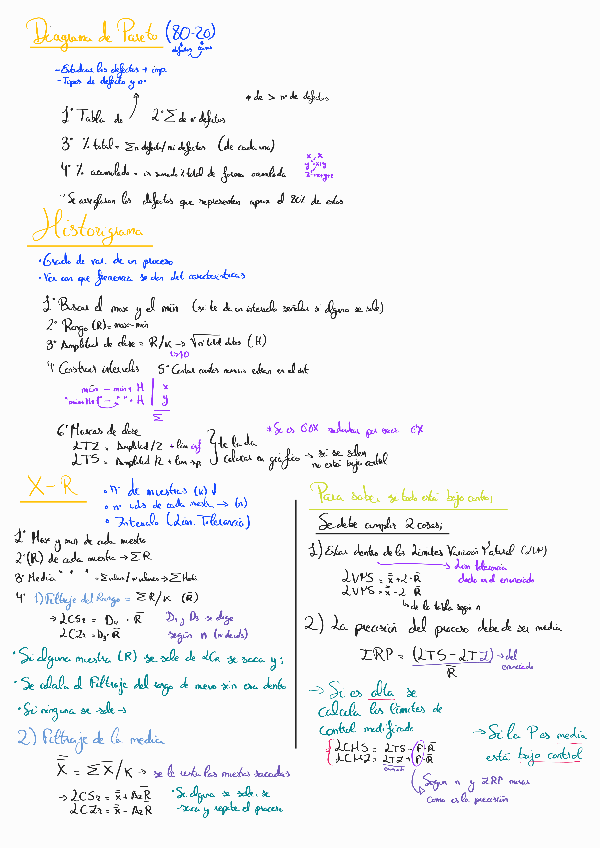 Diagrama de Pareto (80-20)
defectos causa
- Estudiar los defectos + imp.
- Tipos de defecto y nº
* de > nº de defectos
1º Tabla de 2º Σ de nº defectos
3º % total = Σn defecto/nº defectos (de cada uno)
4º % acumulado = ir sumando % total de forma acumulada
x x
y x+y
z x+y+z
Se arreglaran los defectos que representen aprox el 80% de estos
Historigrama
• Grado de var. de un proceso
• Ver con que frecuencia se dan del características
1º Buscar el max y el min (si te da un intervalo señalar si alguno se sale)
2º Rango (R) = max-min
3º Amplitud de clase = R/K → √nº total datos (H)
4º Construir intervalos 5º Contar cuantas muestras estan en el int
min - min + H | x
y
Σ
6º Marcas de clase
LTI = Amplitud/2 + lim inf
LTS = Amplitud/2 + lim sup
te la da
colocar en gráfico → si se salen
no está bajo control
X-R
• nº de muestras (K) ↓
• nº uds de cada muestr → (n)
• Intervalo (Lim. Tolerancia)
1º Max y min de cada muestra
2º (R) de cada muestra → ΣR
3º Media " " " =
4º 1) Filtraje del Rango = ΣR/K (R̄)
→ LCSR = D4 · R̄
LCIR = D3 · R̄
D4 y D3 → elige
según n (nº de uds)
• Si alguna muestra (R) se sale de LCR se saca y:
• Se calcula el Filtraje del rango de nuevo sin ese dato
• Si ninguna se sale →
2) Filtraje de la media
X̿ = ΣX̄/K → se le resta las muestras sacadas
→ LCSx̄ = x̿ + A2R̄
LCIx̄ = x̿ - A2R̄
• Si alguna se sale, se
saca y repite el proceso
Para saber si todo está bajo control
Se debe cumplir 2 cosas:
1) Estar dentro de los Limites Variación Natural (LVN)
Lim tolerancia
dado en el enunciado
= x̿ + 2 · R̄
= x̿ - 2 · R̄
de la tabla según n
2) La precisión del proceso debe de ser media
IRP = (LTS - LTI)/R̄ → del
enunciado
→ Si es alta se
calcula los límites de
control modificado
LCMS = LTS - P · R̄
LCMI = LTI + P · R̄
enunciado
Según n y IRP
como es la precisión
→ Si la P es media
está bajo control